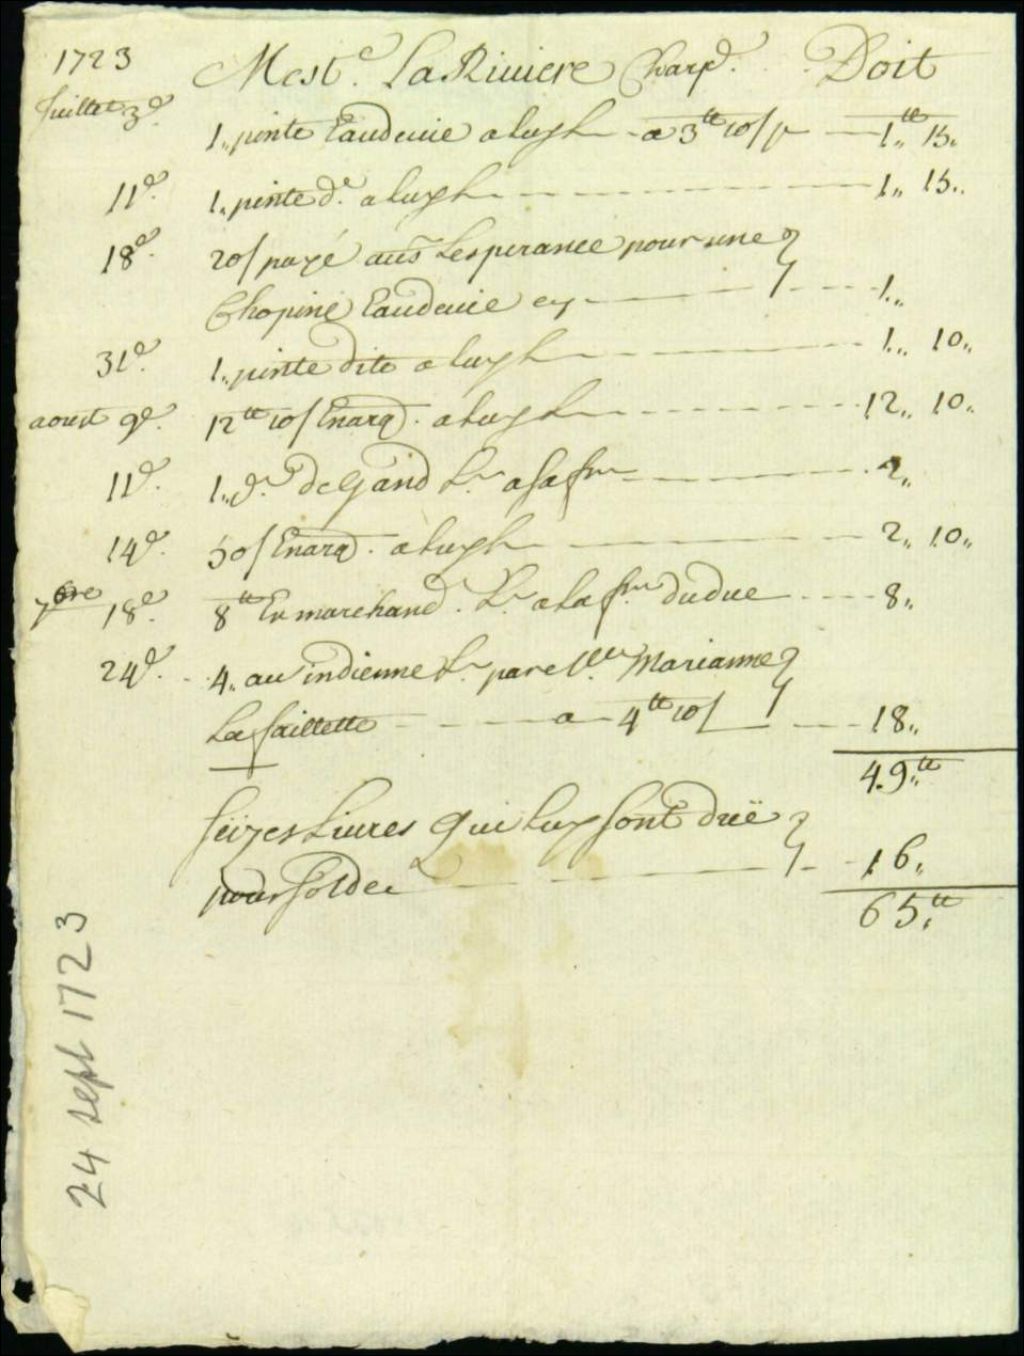 1723 Mest.e LaRiviere Charp.r Doit
Juillet 3e.
1,, pinte Eaudevie a luy a 3tt 10s p 1tt,, 15,,
11e. 1,, pinte d.e a luy 1,, 15,,
18e. 20s payé au S Lesperance pour une
Chopine Eaudevie cy 1,,
31e. 1,, pinte dite a luy 1,, 10,,
aoust 9e. 12tt 10s En arg.t a luy 12,, 10,,
11e. 1,, de Gand L.r a sa fme 2,,
14e. 50s En arg.t a luy 2,, 10,,
7bre 18e. 8tt En marchand. L.r a la f.me du duc 8,,
24e. 4,, au indienne L.r par e Mlle Marianne
La faillette a 4tt 10s 18,,
49,,tt
Seizes Livres Qui luy sont duë
pour solde 16,,
65,,tt
24 sept 1723